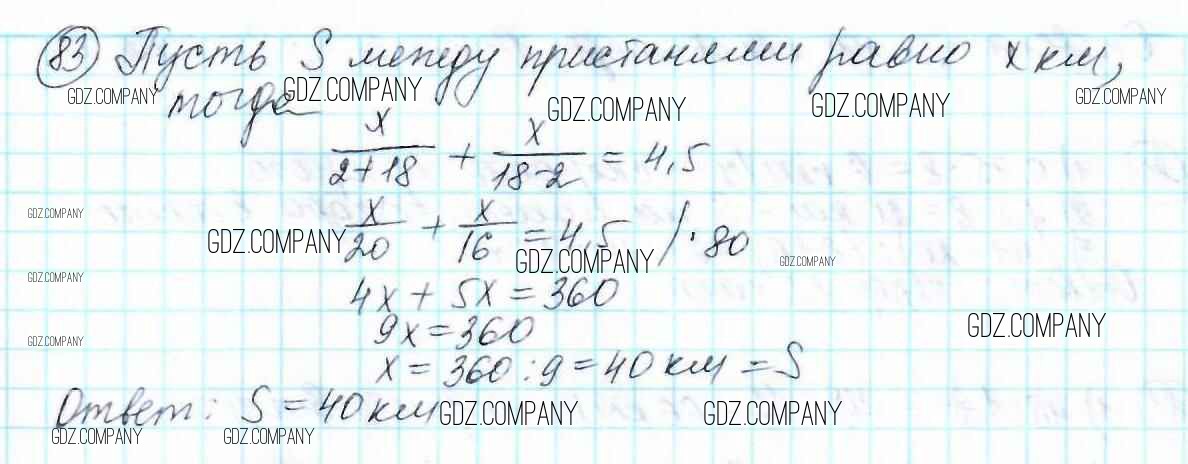 83 Пусть S между пристанями равно x км,
GDZ.COMPANY GDZ.COMPANY GDZ.COMPANY GDZ.COMPANY GDZ.COMPANY
тогда
x/(2+18) + x/(18-2) = 4,5
GDZ.COMPANY
x/20 + x/16 = 4,5 /·80
GDZ.COMPANY GDZ.COMPANY GDZ.COMPANY
GDZ.COMPANY
4x + 5x = 360
GDZ.COMPANY
9x = 360
GDZ.COMPANY
x = 360 : 9 = 40 км = S
Ответ: S = 40 км
GDZ.COMPANY GDZ.COMPANY
GDZ.COMPANY GDZ.COMPANY